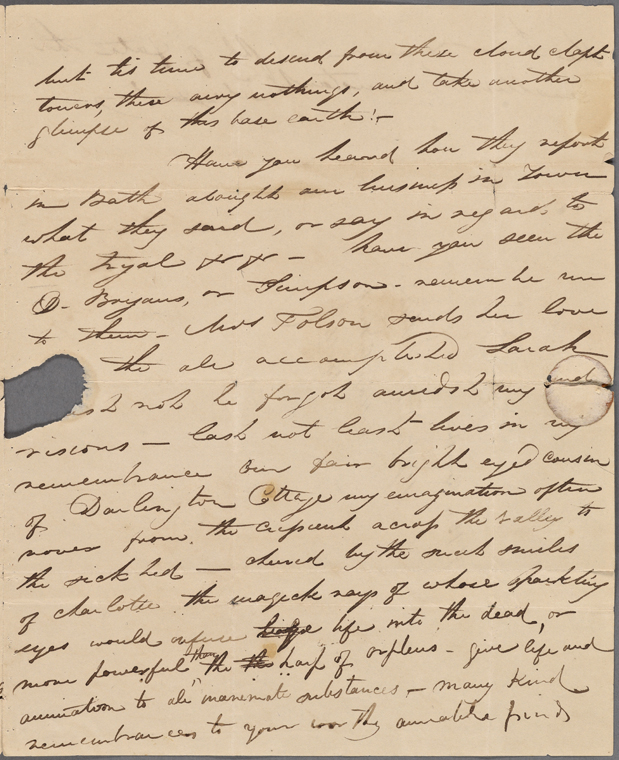 but tis time to descend from these cloud clapt
towers, these airy nothings, and take another
glimpse of this base earth!—
Have you heared how they report
in Bath abought our business in Town
what they said, or say in regard to
the tryal &c &c — have you seen the
D. Bryans, or Simpson - remember me
to them - Mrs Folson sends her love
the all accomplished Sarah
st not be forgot amidst my
visions — last not least lives in my
remembrance our fair bright eye'd cousin
of Darlington Cottage my emagination often
roves from the cresent across the valley to
the sick bed — cheered by the sweet smiles
of charlotte the magick rays of whose sparkling
eyes would infuse life into the dead, or
more powerful than the harp of orpheus - give life and
animation to all inanimate substances — many kind
remembrances to your worthy friends